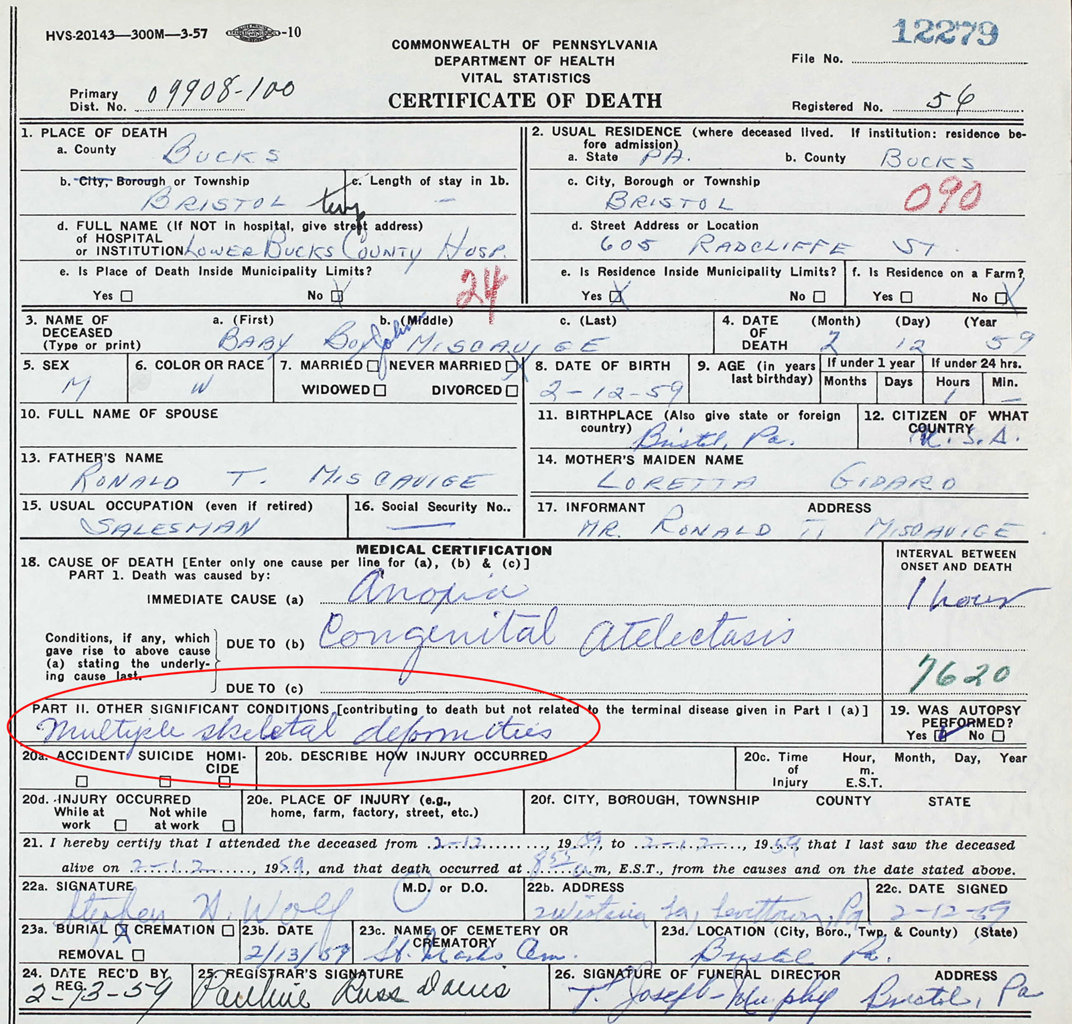 HVS-20143—300M—3-57 -10
12279
COMMONWEALTH OF PENNSYLVANIA
DEPARTMENT OF HEALTH
VITAL STATISTICS
CERTIFICATE OF DEATH
File No.
Primary
Dist. No. 09908-100
Registered No. 56
1. PLACE OF DEATH
a. County BUCKS
2. USUAL RESIDENCE (where deceased lived. If institution: residence be-
fore admission)
a. State PA. b. County BUCKS
b. City, Borough or Township
BRISTOL twp
c. Length of stay in 1b.
—
c. City, Borough or Township
BRISTOL
090
d. FULL NAME (If NOT in hospital, give street address)
of HOSPITAL
or INSTITUTION LOWER BUCKS COUNTY HOSP.
d. Street Address or Location
605 RADCLIFFE ST.
e. Is Place of Death Inside Municipality Limits?
Yes No X
24
e. Is Residence Inside Municipality Limits?
Yes X No
f. Is Residence on a Farm?
Yes No X
3. NAME OF
DECEASED
(Type or print)
a. (First) b. (Middle) c. (Last)
BABY BOY John MISCAVIGE
4. DATE
OF
DEATH
(Month) (Day) (Year
2 12 59
5. SEX
M
6. COLOR OR RACE
W
7. MARRIED NEVER MARRIED X
WIDOWED DIVORCED
8. DATE OF BIRTH
2-12-59
9. AGE (in years
last birthday)
If under 1 year
Months Days
If under 24 hrs.
Hours Min.
1 —
10. FULL NAME OF SPOUSE
11. BIRTHPLACE (Also give state or foreign
country)
Bristol, Pa.
12. CITIZEN OF WHAT
COUNTRY
U.S.A.
13. FATHER'S NAME
RONALD T. MISCAVIGE
14. MOTHER'S MAIDEN NAME
LORETTA GIDARO
15. USUAL OCCUPATION (even if retired)
SALESMAN
16. Social Security No..
—
17. INFORMANT ADDRESS
MR. RONALD T. MISCAVIGE
MEDICAL CERTIFICATION
18. CAUSE OF DEATH [Enter only one cause per line for (a), (b) & (c)]
PART 1. Death was caused by:
INTERVAL BETWEEN
ONSET AND DEATH
IMMEDIATE CAUSE (a) Anoxia
1 hour
Conditions, if any, which
gave rise to above cause
(a) stating the underly-
ing cause last.
DUE TO (b) Congenital atelectasis
DUE TO (c)
7620
PART II. OTHER SIGNIFICANT CONDITIONS [contributing to death but not related to the terminal disease given in Part I (a)]
Multiple skeletal deformities
19. WAS AUTOPSY
PERFORMED?
Yes No
20a. ACCIDENT SUICIDE HOMI-
CIDE
20b. DESCRIBE HOW INJURY OCCURRED
20c. Time
of
Injury
Hour, Month, Day, Year
m.
E.S.T.
20d. INJURY OCCURRED
While at
work
Not while
at work
20e. PLACE OF INJURY (e.g.,
home, farm, factory, street, etc.)
20f. CITY, BOROUGH, TOWNSHIP COUNTY STATE
21. I hereby certify that I attended the deceased from 2-12, 1959, to 2-12, 1959, that I last saw the deceased
alive on 2-12, 1959, and that death occurred at 855 a.m, E.S.T., from the causes and on the date stated above.
22a. SIGNATURE M.D. or D.O.
Stephen H. Wolf
22b. ADDRESS
Levittown, Pa
22c. DATE SIGNED
2-12-59
23a. BURIAL X CREMATION
REMOVAL
23b. DATE
2/13/59
23c. NAME OF CEMETERY OR
CREMATORY
St. Marks Cem.
23d. LOCATION (City, Boro., Twp. & County) (State)
Bristol Pa.
24. DATE REC'D BY
REG.
2-13-59
25. REGISTRAR'S SIGNATURE
Pauline Russ Davis
26. SIGNATURE OF FUNERAL DIRECTOR ADDRESS
T. Joseph Murphy Bristol, Pa